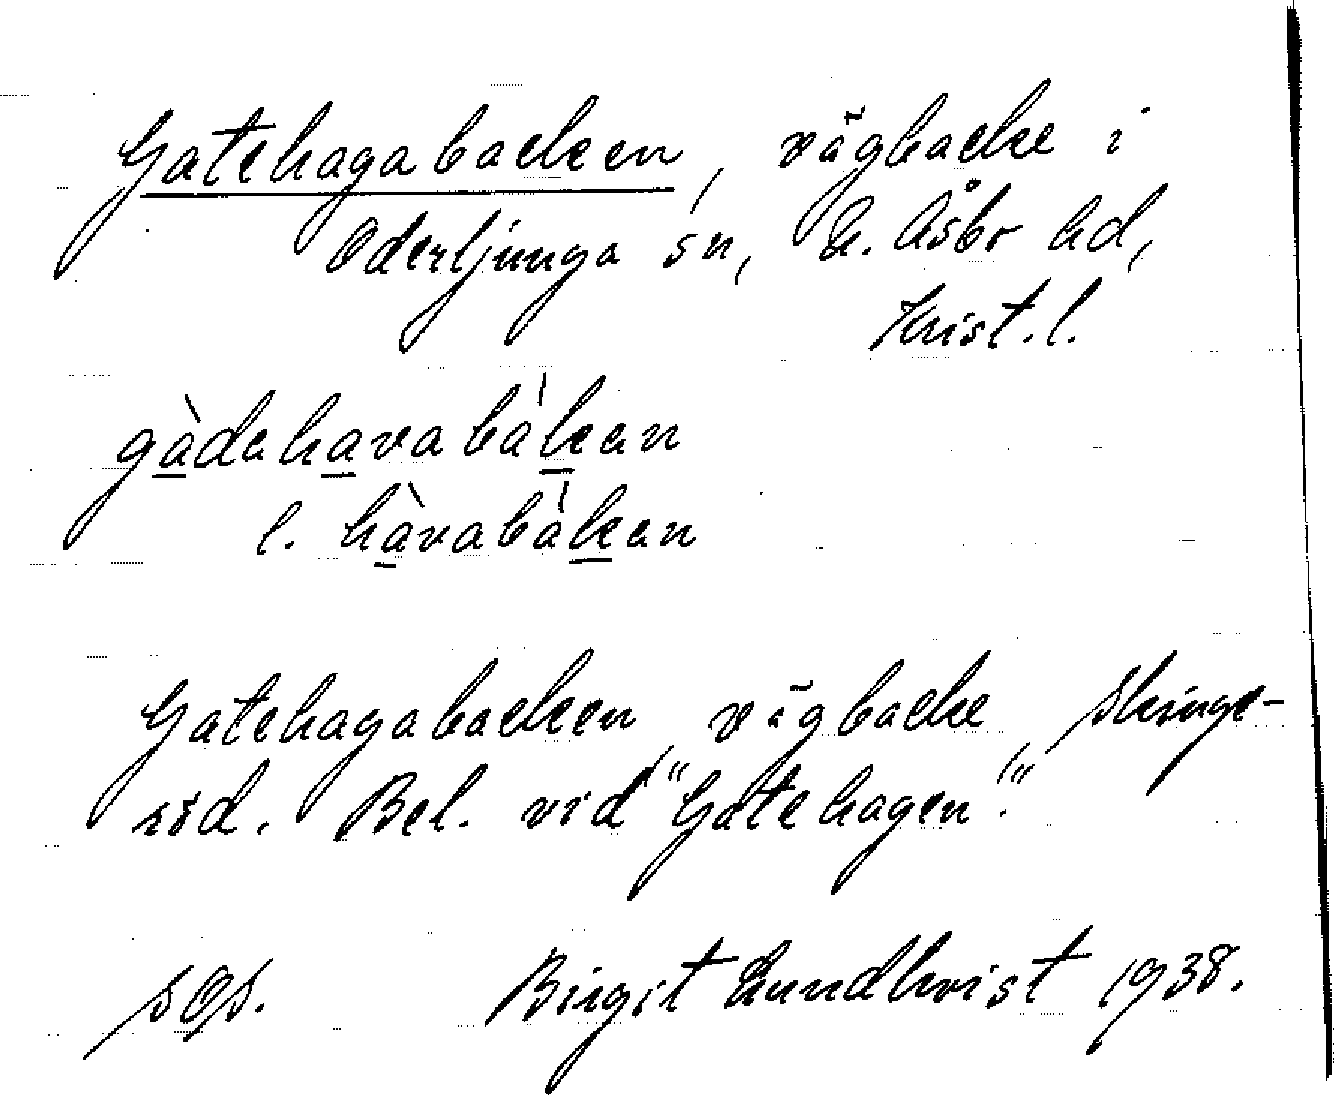 Gatehagabacken, vägbacke i
Oderljunga sn, N. Åsbo hd,
Krist. l.
gàdahavabàkan
l. hàvabàkan
Gatehagabacken, vägbacke, Skinge-
röd. Bel. vid "Gatehagen".
sOs. Birgit Lundkvist 1938.